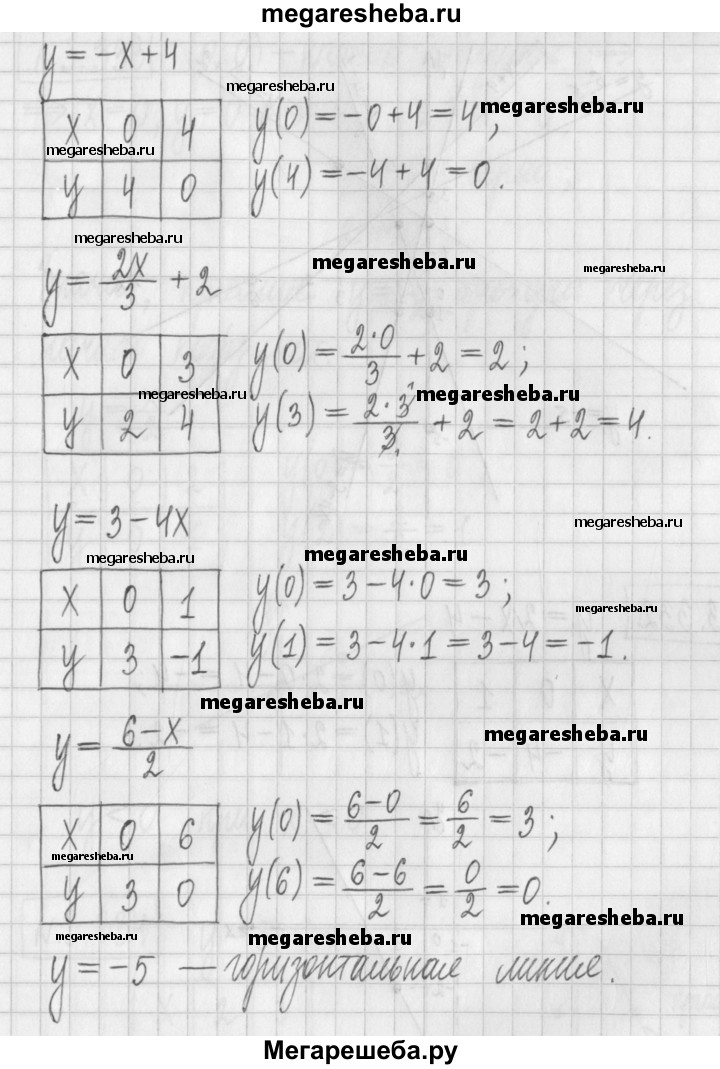 megaresheba.ru
y = -x + 4
megaresheba.ru
x 0 4
y(0) = -0 + 4 = 4;
megaresheba.ru
megaresheba.ru
y 4 0
y(4) = -4 + 4 = 0.
megaresheba.ru
y = 2x/3 + 2
megaresheba.ru
megaresheba.ru
x 0 3
y(0) = 2·0/3 + 2 = 2;
megaresheba.ru
megaresheba.ru
y 2 4
y(3) = 2·3/3 + 2 = 2 + 2 = 4.
1
1
y = 3 - 4x
megaresheba.ru
megaresheba.ru
megaresheba.ru
x 0 1
y(0) = 3 - 4·0 = 3;
megaresheba.ru
y 3 -1
y(1) = 3 - 4·1 = 3 - 4 = -1.
megaresheba.ru
y = 6-x/2
megaresheba.ru
x 0 6
y(0) = 6-0/2 = 6/2 = 3;
megaresheba.ru
y 3 0
y(6) = 6-6/2 = 0/2 = 0.
megaresheba.ru
megaresheba.ru
megaresheba.ru
y = -5 — горизонтальная линия.
Мегарешеба.ру